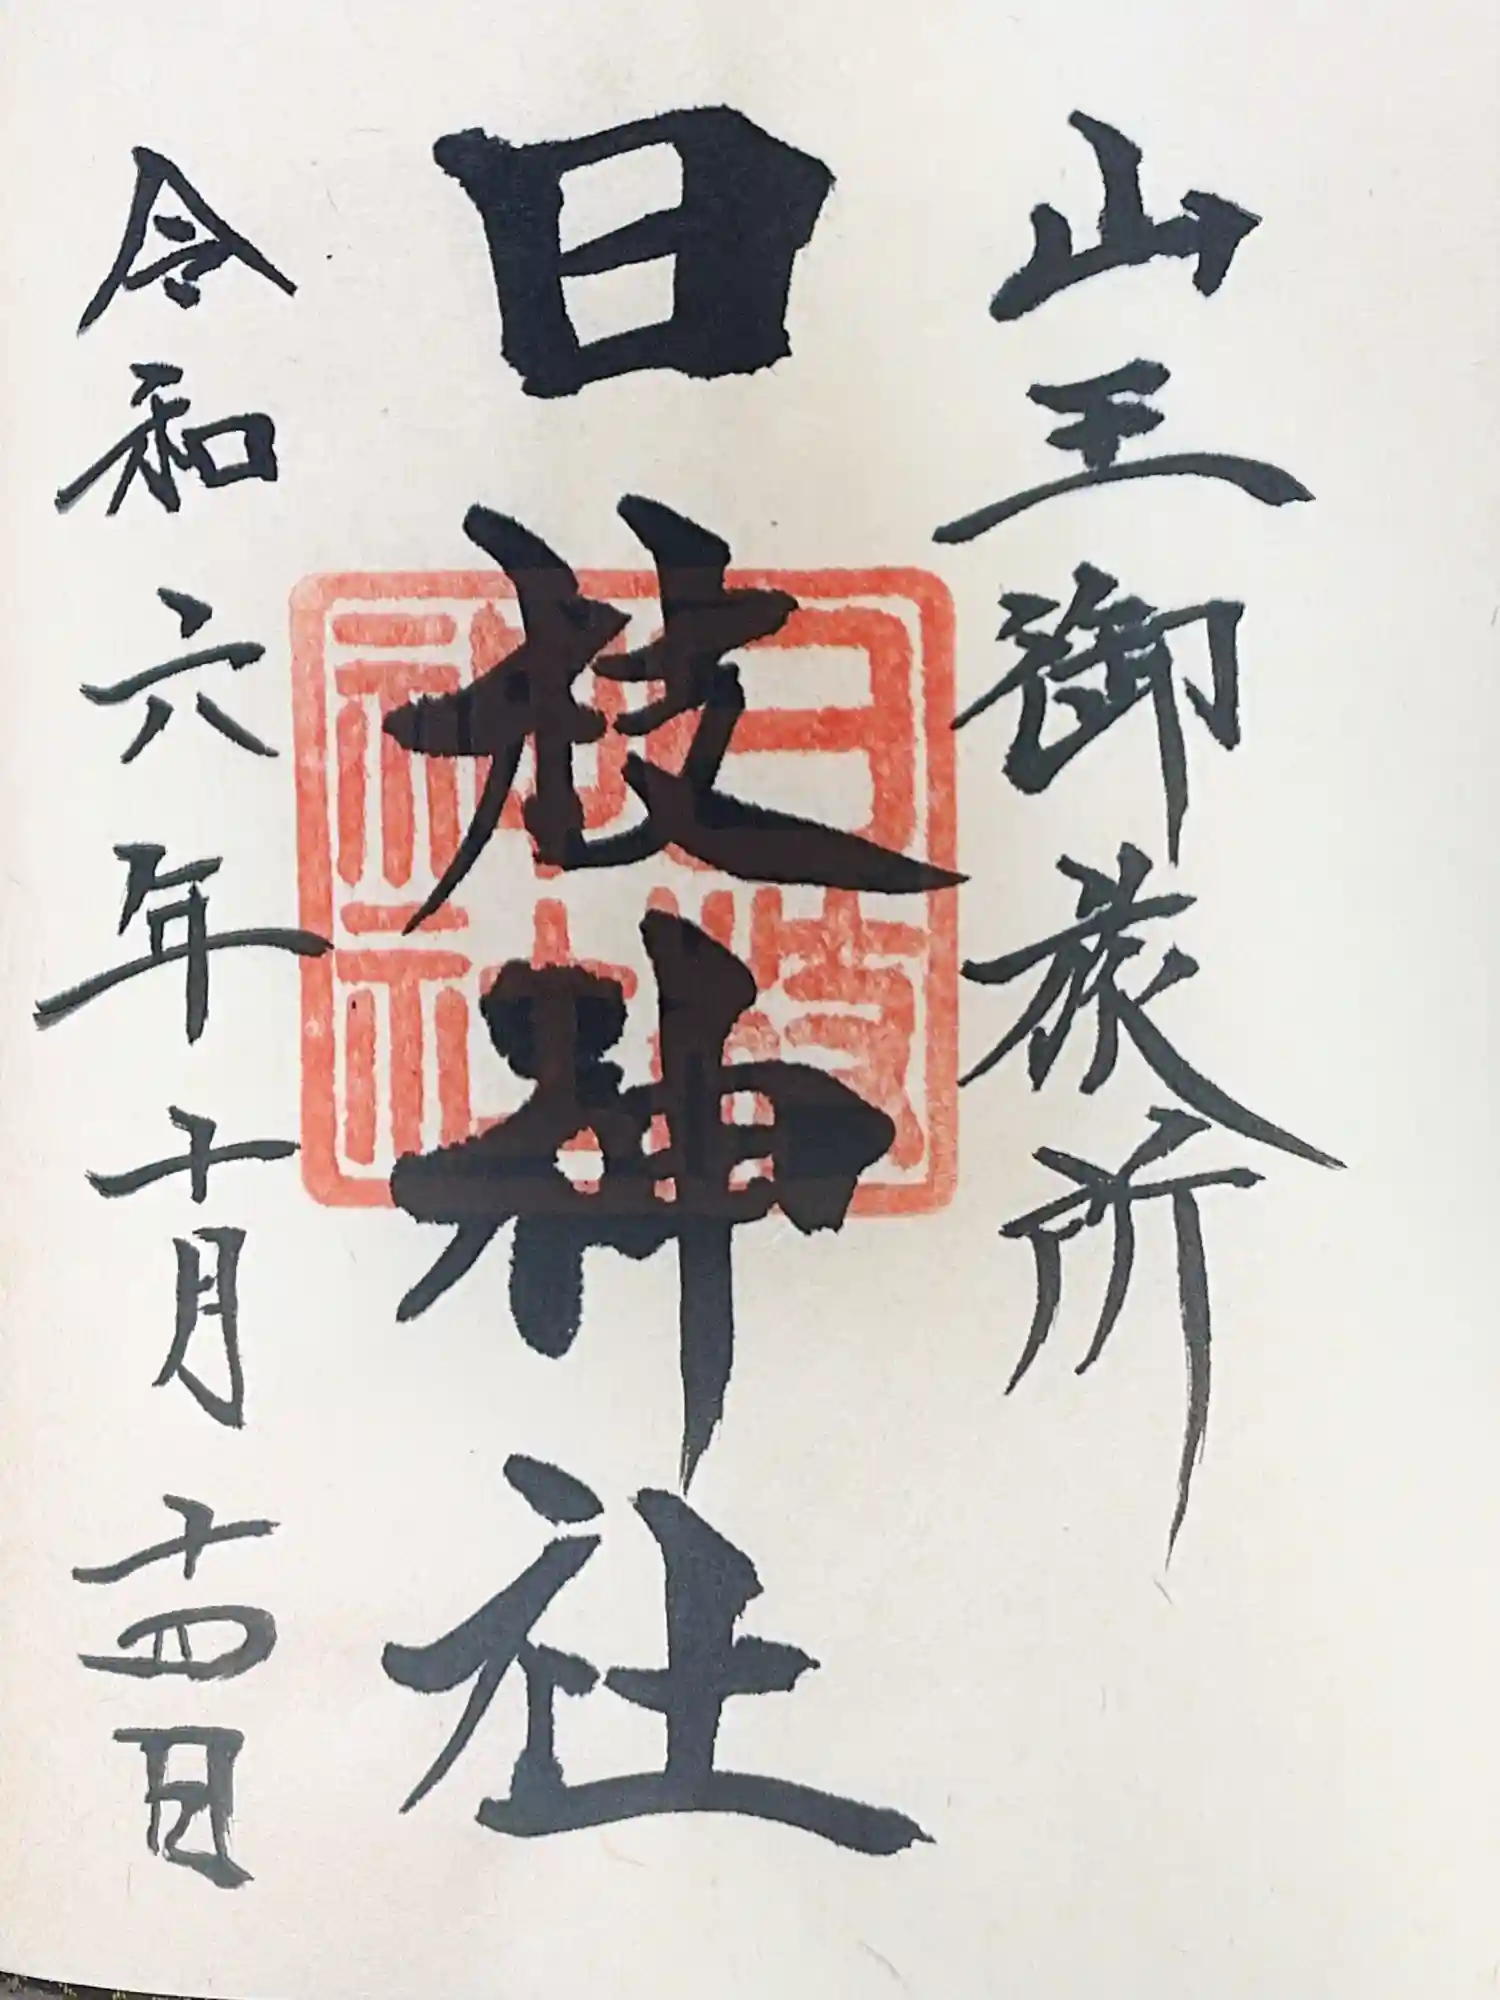 山王御旅所
日枝神社
日枝
神社
令和六年十月十四日